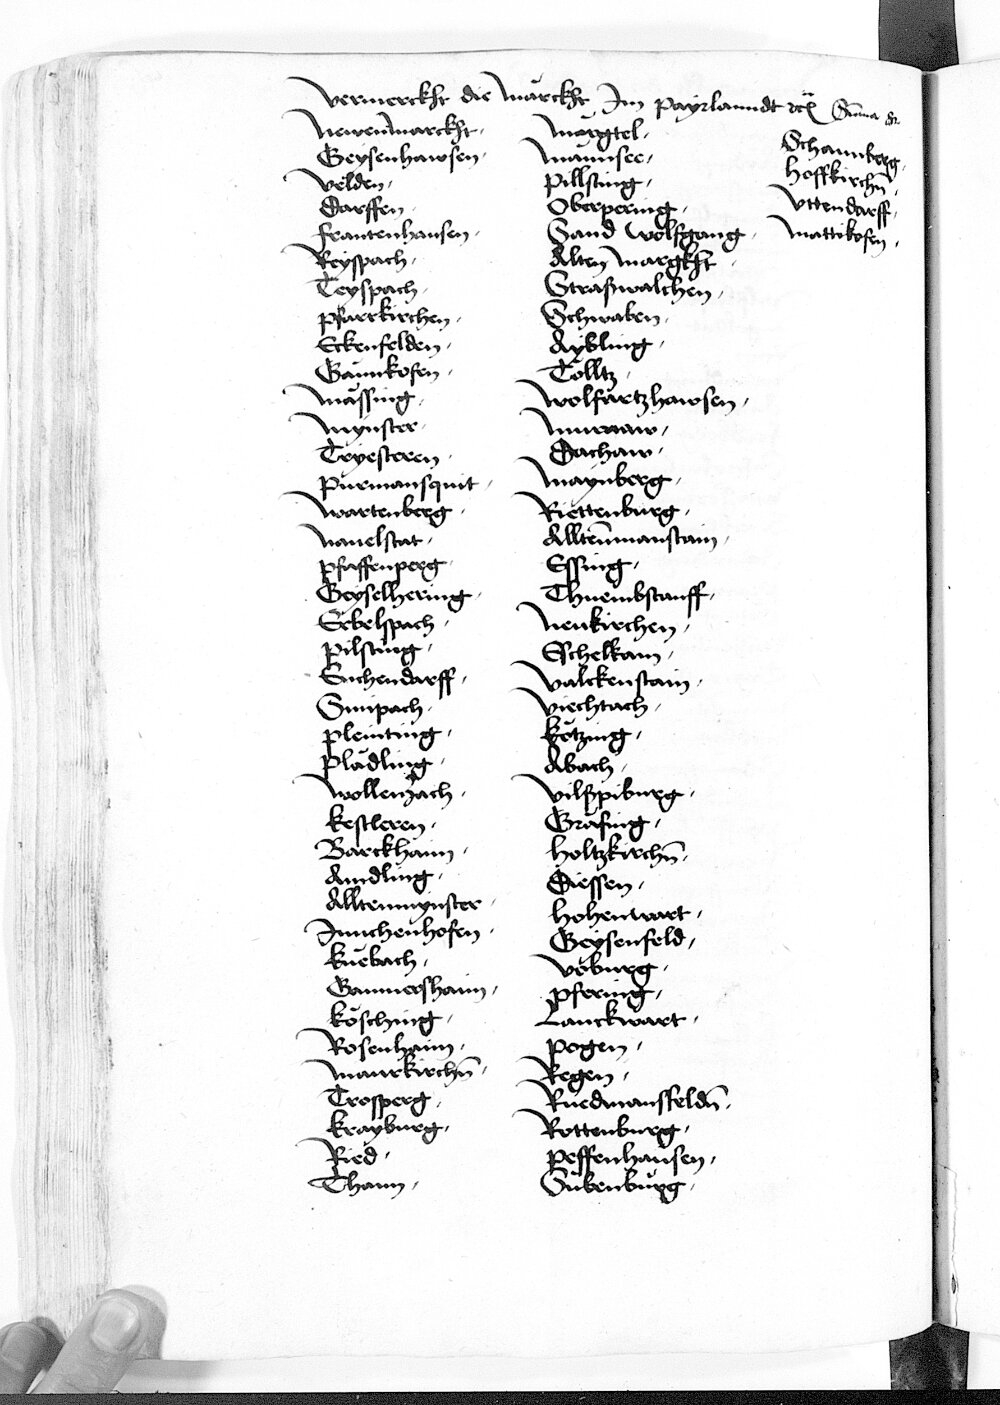 Vermerckht die Märckht Im Payrlanndt etc Suma
Newenmarckht
Geysenhawsen
Velden
Dorffen
Frantenhausen
Reyspach
Teyspach
Pfarrkirchen
Eckenfelden
Gännkofen
Mässing
Mynster
Tryesteren
Purmansquit
Wartenberg
Nanelstat
Pfaffenperg
Geyselhering
Erbelspach
Pilsting
Eichendarff
Simpach
Pleinting
Plädling
Wollenzach
Kestleren
Barckhaim
Aindling
Alltenmynster
Innchenhofen
Kuebach
Gaimershaim
Kösching
Rosenhaim
Maurkirchn
Trosperg
Krayburg
Ried
Thann
Märgtel
Mannsee
Pillsting
Oberpering
Sand Wolfgang
Alten Margkht
Straswalchen
Schwaben
Aybling
Tölltz
Wolfartzhawsen
Murnaw
Dachaw
Maynberg
Riettenburg
Alltenmanstain
Essing
Thuembstauff
Neukirchen
Eschelkam
Valckenstain
Viechtach
Kötzing
Abach
Vilspiburg
Gräfing
Holtzkirchn
Diessen
Hohenwart
Geysenfeld
Voburg
Pfering
Lanckwart
Pogen
Regen
Ruedmansfeldn
Rottenburg
Peffenhausen
Subenburg
Schaunberg
Hoffkirchn
Vttendarff
Mattikofen